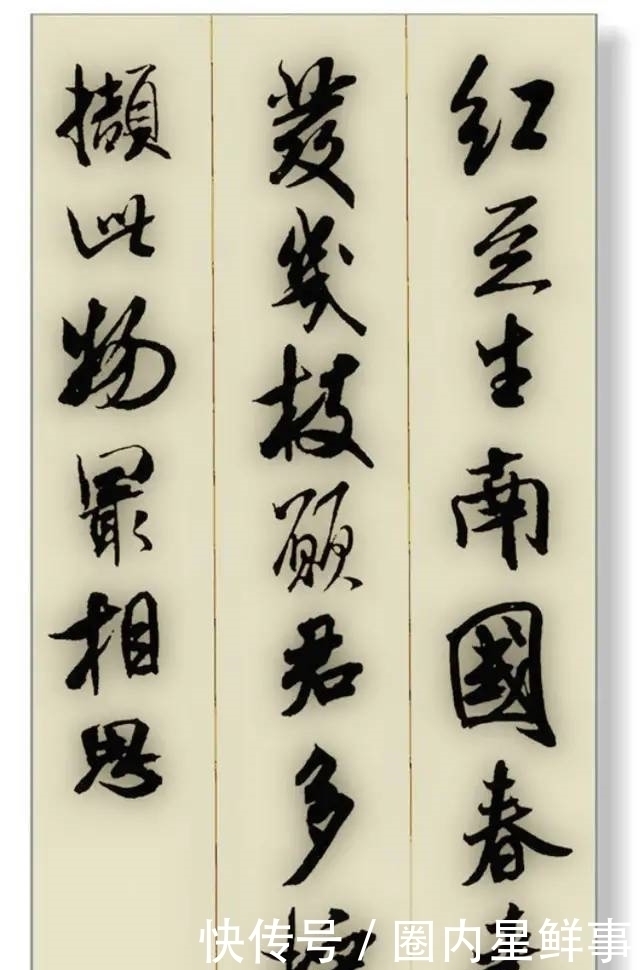 紅豆生南國春
發幾枝願君多
擷此物最相思
快传号 / 圈内星鲜事